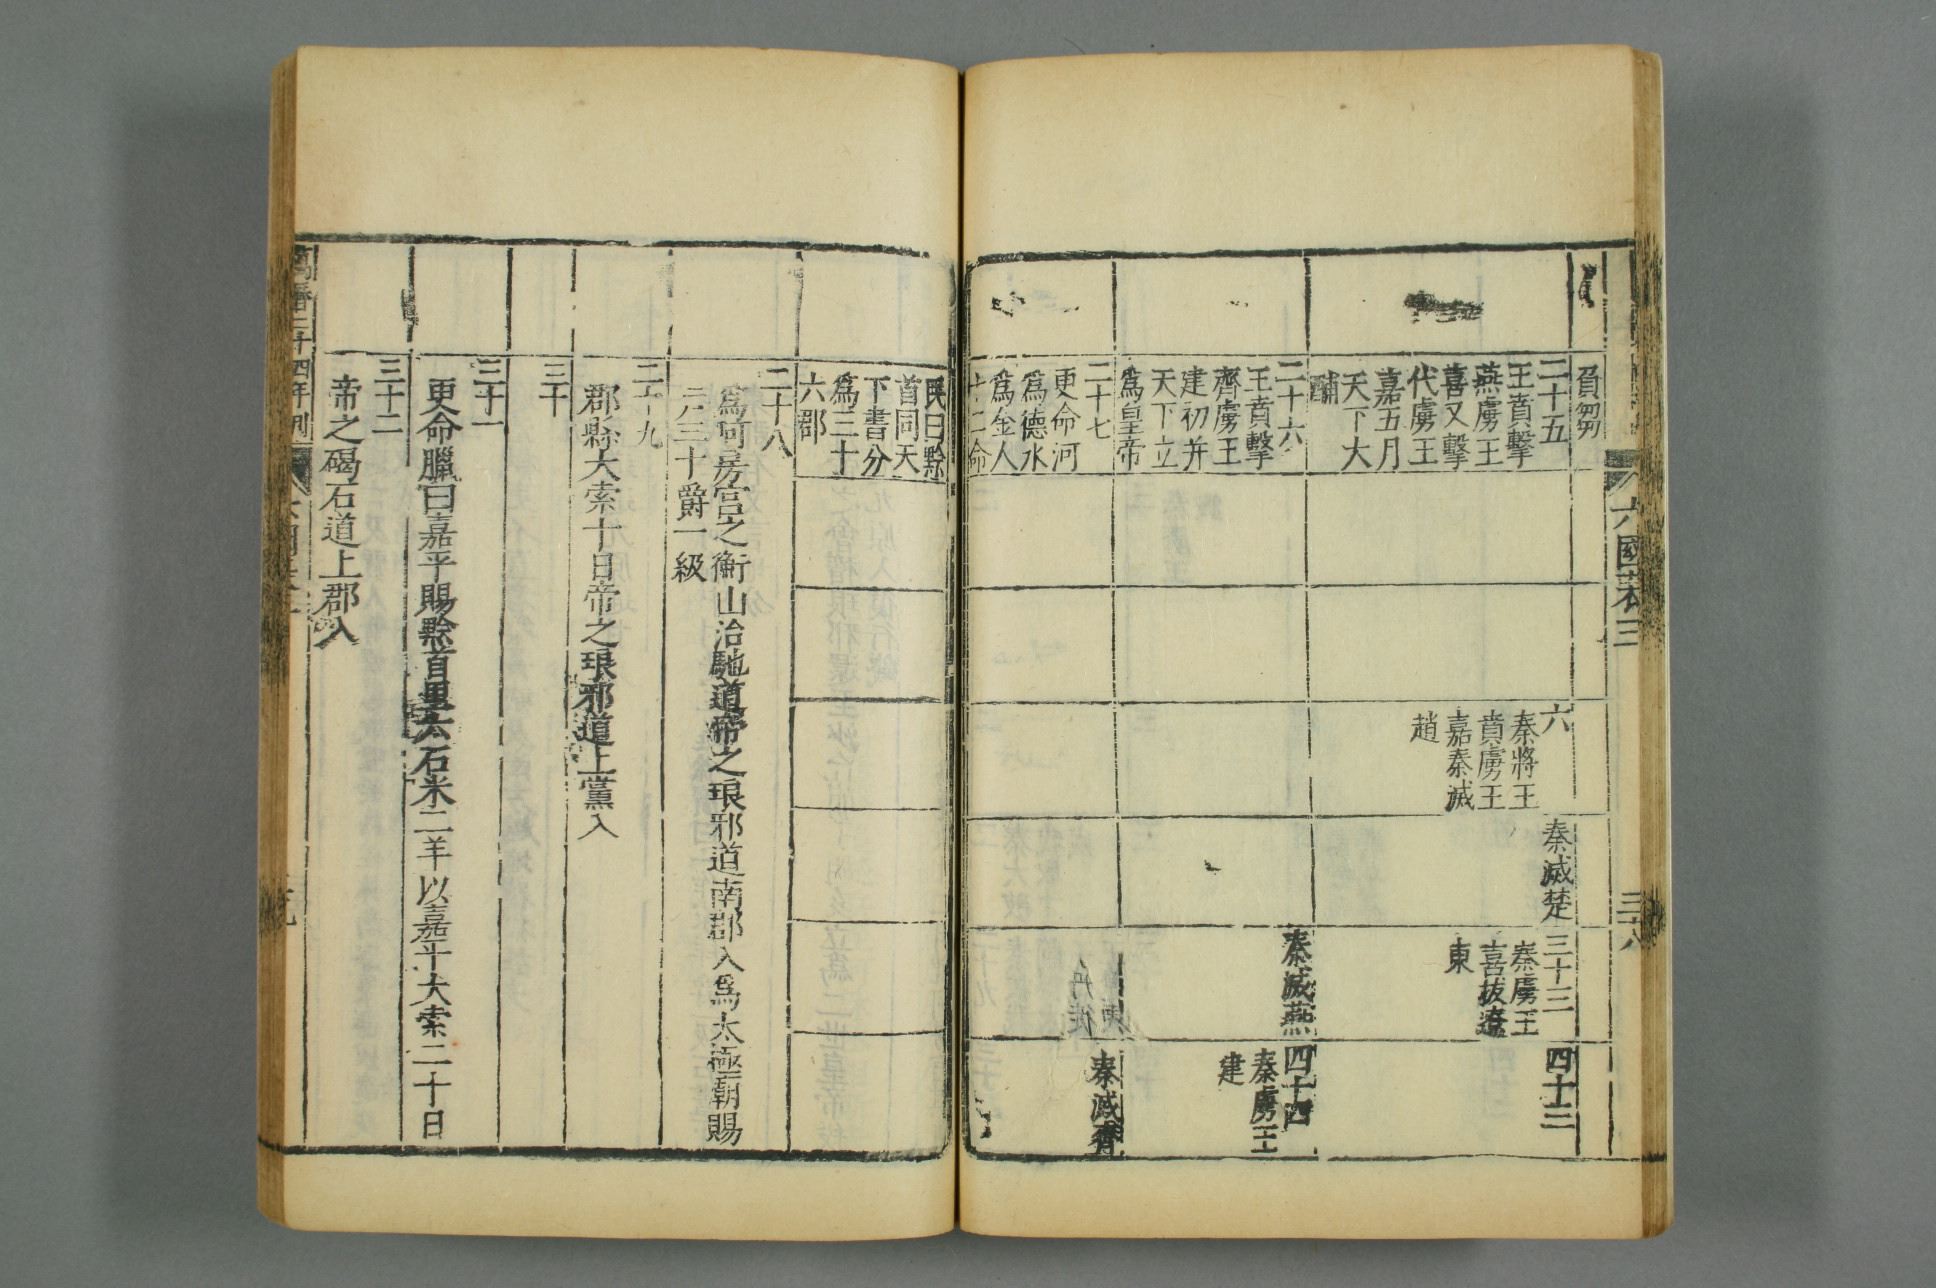 六國表三
三八
負芻
二十五
王賁擊
燕虜王
喜又擊
代虜王
嘉五月
天下大
酺
六
秦將王
賁虜王
嘉秦滅
趙
秦滅楚
三十三
秦虜王
喜拔遼
東
四十三
二十六
王賁擊
齊虜王
建初并
天下立
爲皇帝
秦滅燕
四十四
秦虜王
建
二十七
更命河
爲德水
爲金人
十二命
秦滅齊
民曰黔
首同天
下書分
爲三十
六郡
二十八
爲阿房宮之衡山治馳道帝之琅邪道南郡入爲太極廟賜
戶三十爵一級
二十九
郡縣大索十日帝之琅邪道上黨入
三十
三十一
更命臘曰嘉平賜黔首里六石米二羊以嘉平大索二十日
三十二
帝之碣石道上郡入
萬曆二十四年刊